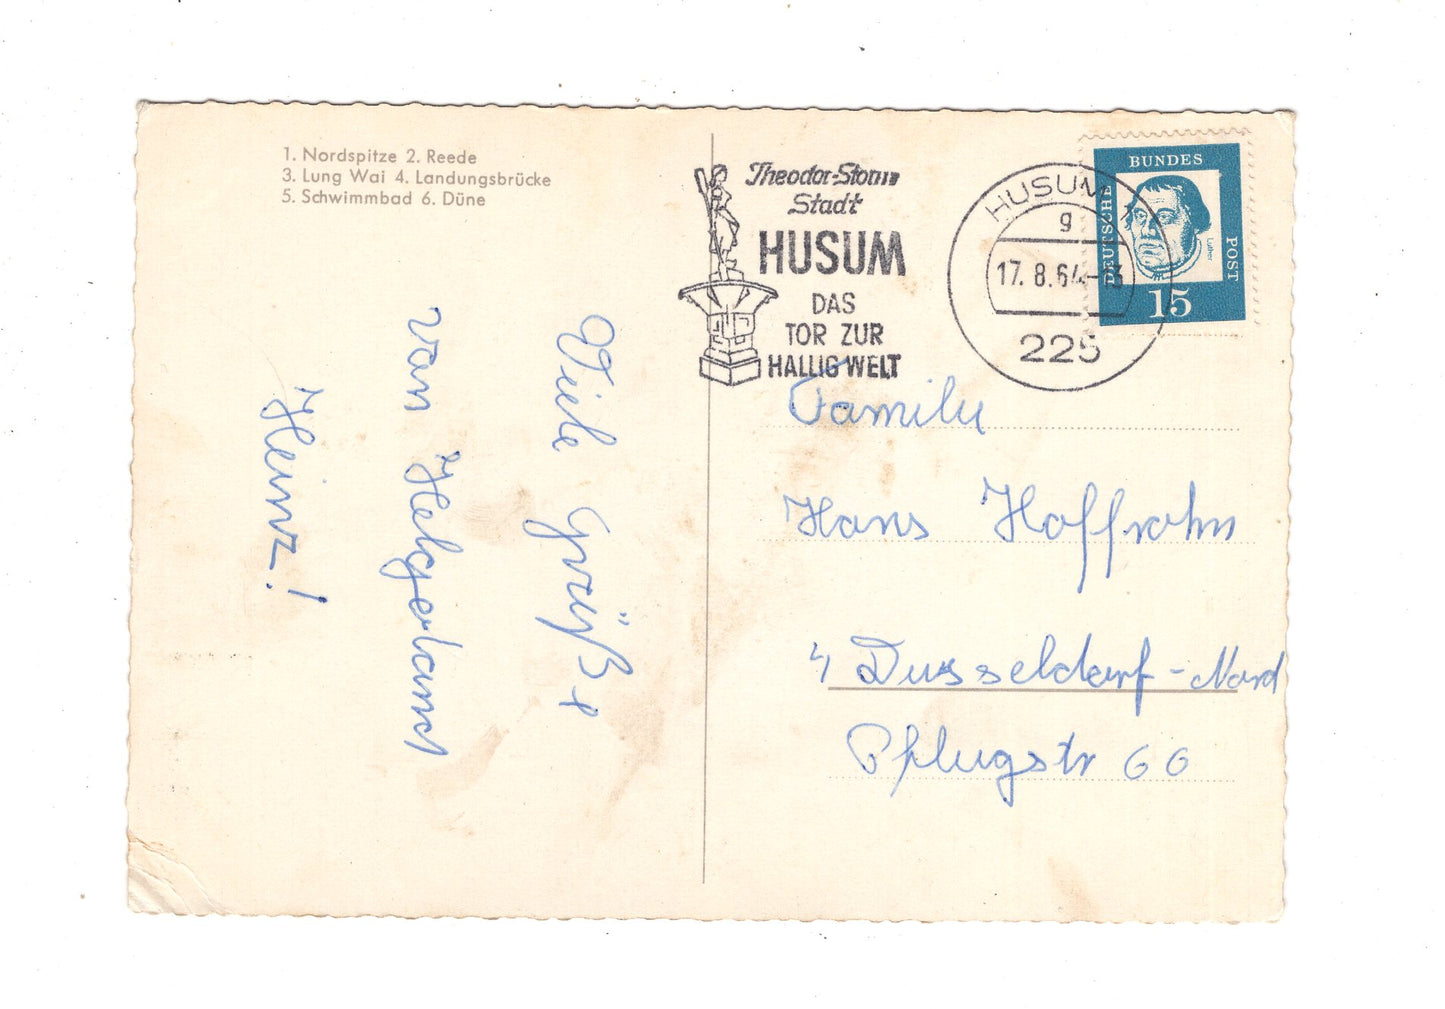 1. Nordspitze 2. Reede
3. Lung Wai 4. Landungsbrücke
5. Schwimmbad 6. Düne
Viele Grüße
von Helgoland
Heinz!
Theodor-Storm
Stadt
HUSUM
DAS
TOR ZUR
HALLIG WELT
HUSUM 1
g
17. 8. 64-13
225
BUNDES
DEUTSCHE
POST
Luther
15
Familie
Hans Hoffrohn
4 Dusseldorf-Nord
Pflugstr 66